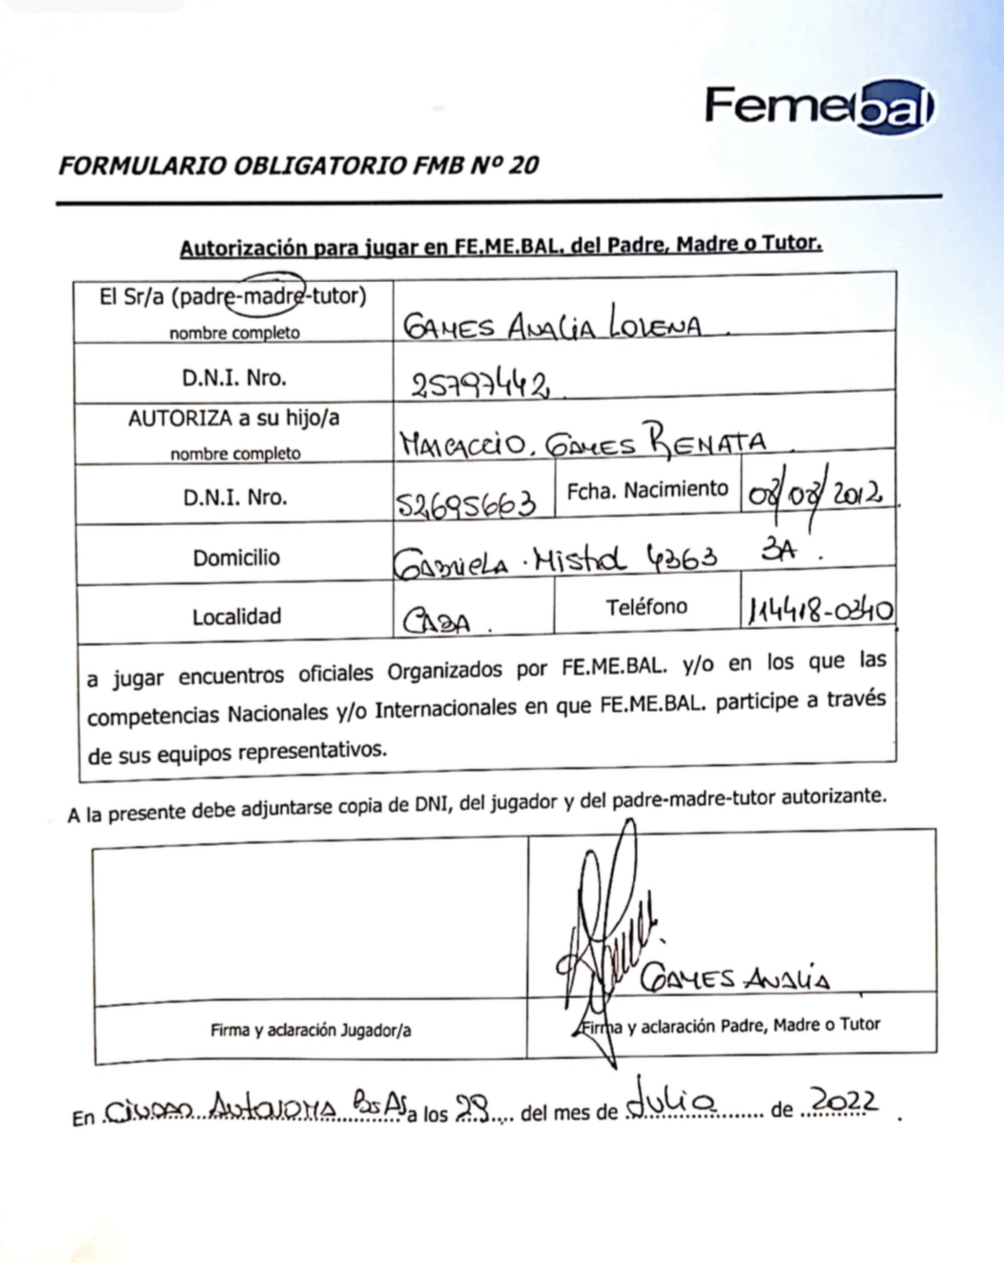 Femebal
FORMULARIO OBLIGATORIO FMB Nº 20
Autorización para jugar en FE.ME.BAL. del Padre, Madre o Tutor.
El Sr/a (padre-madre-tutor)
nombre completo
GAMES ANALIA LORENA.
D.N.I. Nro.
25797442.
AUTORIZA a su hijo/a
nombre completo
MARCACCIO. GAMES RENATA.
D.N.I. Nro.
52695663
Fcha. Nacimiento
08/08/2012
Domicilio
GABRIELA. Mistral 4363 3A.
Localidad
CABA.
Teléfono
114418-0340
a jugar encuentros oficiales Organizados por FE.ME.BAL. y/o en los que las
competencias Nacionales y/o Internacionales en que FE.ME.BAL. participe a través
de sus equipos representativos.
A la presente debe adjuntarse copia de DNI, del jugador y del padre-madre-tutor autorizante.
GAMES ANALIA
Firma y aclaración Jugador/a
Firma y aclaración Padre, Madre o Tutor
En Ciudad Autonoma BsAs a los 29 del mes de Julio de 2022.